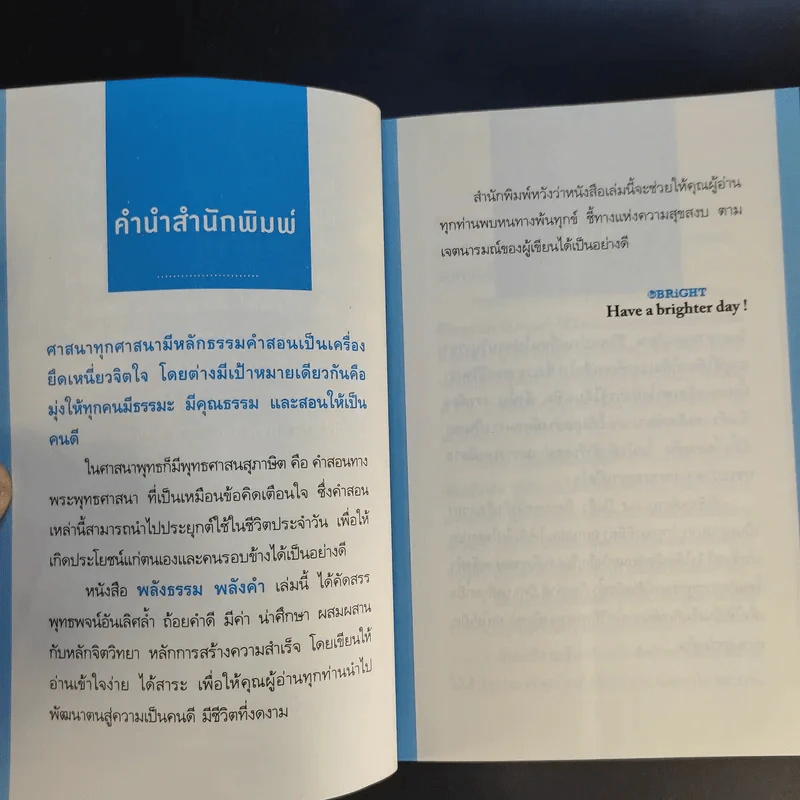 คำนำสำนักพิมพ์
ศาสนาทุกศาสนามีหลักธรรมคำสอนเป็นเครื่อง
ยึดเหนี่ยวจิตใจ โดยต่างมีเป้าหมายเดียวกันคือ
มุ่งให้ทุกคนมีธรรมะ มีคุณธรรม และสอนให้เป็น
คนดี
ในศาสนาพุทธก็มีพุทธศาสนสุภาษิต คือ คำสอนทาง
พระพุทธศาสนา ที่เป็นเหมือนข้อคิดเตือนใจ ซึ่งคำสอน
เหล่านี้สามารถนำไปประยุกต์ใช้ในชีวิตประจำวัน เพื่อให้
เกิดประโยชน์แก่ตนเองและคนรอบข้างได้เป็นอย่างดี
หนังสือ พลังธรรม พลังคำ เล่มนี้ ได้คัดสรร
พุทธพจน์อันเลิศล้ำ ถ้อยคำดี มีค่า น่าศึกษา ผสมผสาน
กับหลักจิตวิทยา หลักการสร้างความสำเร็จ โดยเขียนให้
อ่านเข้าใจง่าย ได้สาระ เพื่อให้คุณผู้อ่านทุกท่านนำไป
พัฒนาตนสู่ความเป็นคนดี มีชีวิตที่งดงาม
สำนักพิมพ์หวังว่าหนังสือเล่มนี้จะช่วยให้คุณผู้อ่าน
ทุกท่านพบหนทางพ้นทุกข์ ชี้ทางแห่งความสุขสงบ ตาม
เจตนารมณ์ของผู้เขียนได้เป็นอย่างดี
BRiGHT
Have a brighter day !